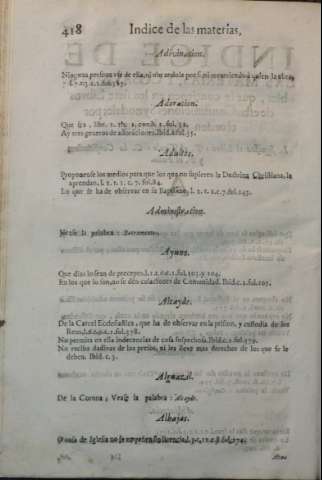 418 Indice de las materias,
Adivinacion.
Ninguna persona use de ella, ni
Adoracion.
Que sea, lib. 1. tit. 1. const. 1. fol. 32.
Ay tres generos de adoraciones. Ibid. fol. 35.
Adultos.
Proponense los medios para que los que no supieren la Doctrina Christiana, la
aprendan, l. 1. t. 1. c. 7. fol. 84.
Lo que se ha de observar en su Baptismo, l. 1. t. 2. c. 7. fol. 245.
Administracion.
Vease la palabra: Sacramento.
Ayuno.
Que dias lo sean de precepto, fol. 103. y 104.
En los que lo son, no se dèn colaciones de Comunidad. Ibid. c. 1. fol. 105.
Alcayde.
De la Carcel Ecclesiastica, que ha de observar en la prision, y custodia de los
Reos, fol. 378.
No permita en ella indecencias de cosa sospechosa. Ibid. c. 2. fol. 379.
No reciba dadivas de los presos, ni les lleve mas derechos de los que se le
deben. Ibid. c. 3.
Alguazil.
De la Corona; Vease la palabra: Alcayde.
Alhajas.
de Iglesia no se